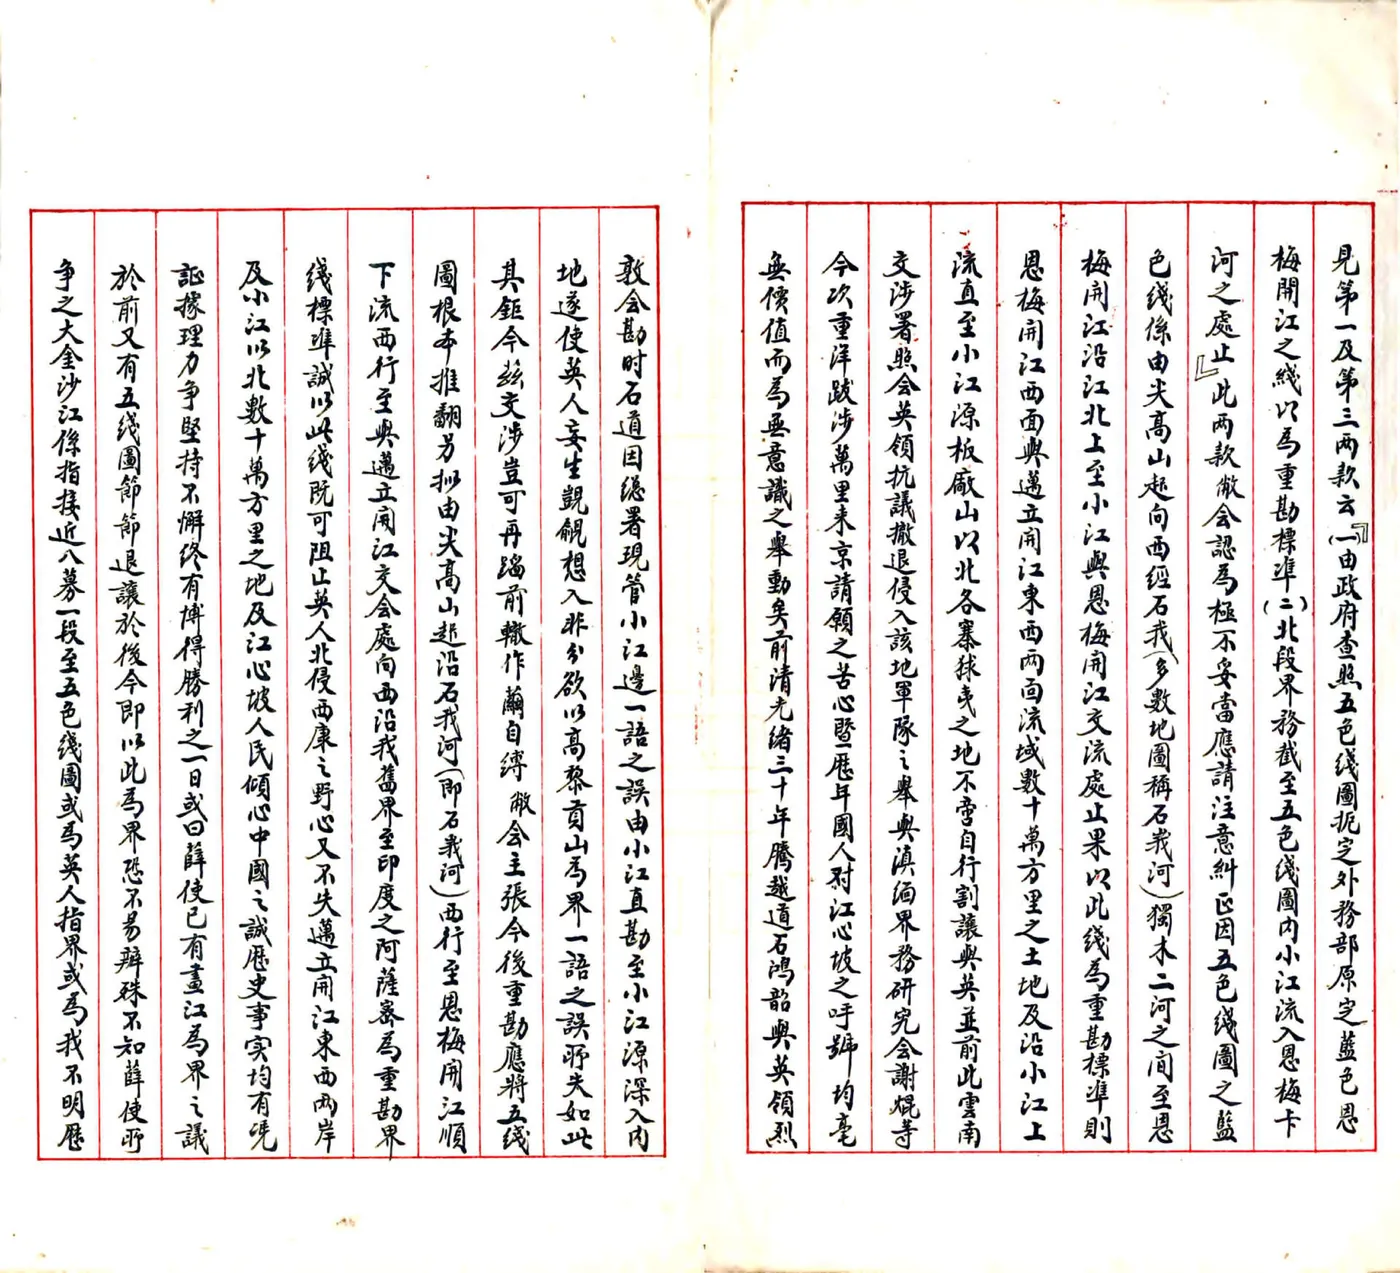 見第一及第三两款云『(一)由政府查照五色线圖扼定外務部原定藍色恩
梅開江之綫以為重勘標準(二)北段界務截至五色綫圖内小江流入恩梅卡
河之處止』此两款敝会認為極不妥當應請注意糾正因五色线圖之藍
色綫係由尖高山起向西經石我(多數地圖稱石峩河)獨木二河之间至恩
梅開江沿江北上至小江與恩梅開江交流處止果以此綫為重勘標準則
恩梅開江西面與邁立開江東西两面流域數十萬方里之土地及沿小江上
流直至小江源板廠山以北各寨猍夷之地不啻自行割讓與英並前此雲南
交涉署照会英領抗議撤退侵入該地軍隊之舉與滇緬界務研究会謝焜等
今次重洋跋涉萬里来京請願之苦心暨歷年國人對江心坡之呼號均毫
無價值而為無意識之舉動矣前清光緒三十年騰越道石鴻韶與英領烈
敦会勘时石道因總署現管小江邊一語之誤由小江直勘至小江源深入内
地遂使英人妄生覬覦想入非分欲以高黎貢山為界一語之誤所失如此
其鉅今兹交涉豈可再蹈前轍作繭自縛敝会主張今後重勘應將五线
圖根本推翻另拟由尖高山起沿石我河(即石峩河)西行至恩梅開江順
下流西行至與邁立開江交会處向西沿我舊界至印度之阿薩密為重勘界
綫標準誠以此綫既可阻止英人北侵西康之野心又不失邁立開江東西两岸
及小江以北數十萬方里之地及江心坡人民傾心中國之誠歷史事实均有凭
証據理力争堅持不懈终有博得勝利之一日或曰薛使已有畫江為界之議
於前又有五线圖節節退讓於後今即以此為界恐不易辦殊不知薛使所
争之大金沙江係指接近八募一段至五色线圖或為英人指界或為我不明歷